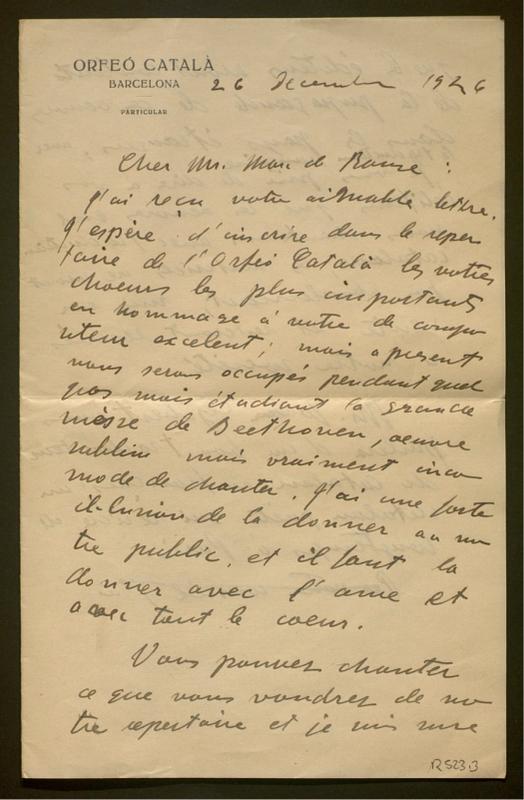 ORFEÓ CATALÀ
BARCELONA
PARTICULAR
26 Decembre 1926
Cher Mr. Marc de Ranse :
J'ai reçu votre aimable lettre.
J'espère d'inscrire dans le reper
toire de l'Orfeó Català les votres
choeurs les plus importants
en hommage à votre de compo
siteur excelent; mais a present
nous serons occupés pendant quel
mois étudiant la grande
messe de Beethoven, oeuvre
sublime mais vraiment inco
mode de chanter. J'ai une forte
il·lusion de la donner au no
tre public, et il faut la
donner avec l'ame et
avec tout le coeur.
Vous pouvez chanter
ce que vous voudrez de no
tre repertoire et je suis
R 523.3